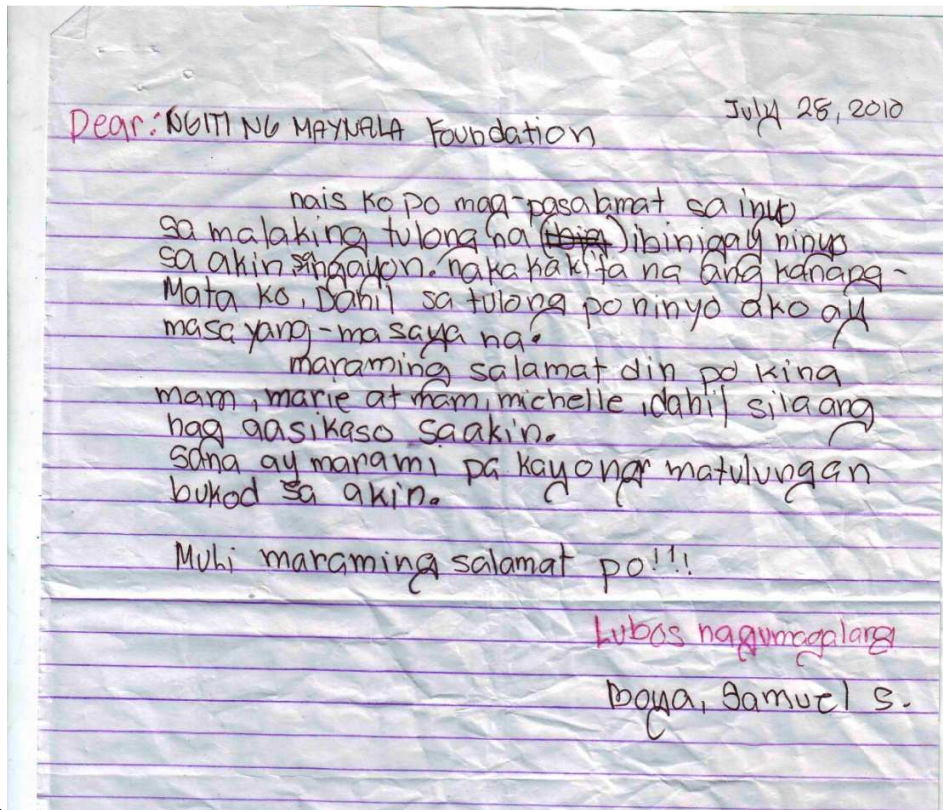 July 28, 2010
Dear: NGITI NG MAYNALA Foundation
nais ko po mag-pasalamat sa inyo
sa malaking tulong na ibinigay ninyo
sa akin, ngayon. nakakakita na ang kanang-
Mata ko, Dahil sa tulong po ninyo ako ay
masayang-masaya na.
maraming salamat din po kina
mam, marie at mam, michelle, dahil sila ang
nag aasikaso saakin.
sana ay marami pa kayong matulungan
bukod sa akin.
Muli maraming salamat po!!!
Lubos nagumagalang
Samuel S.